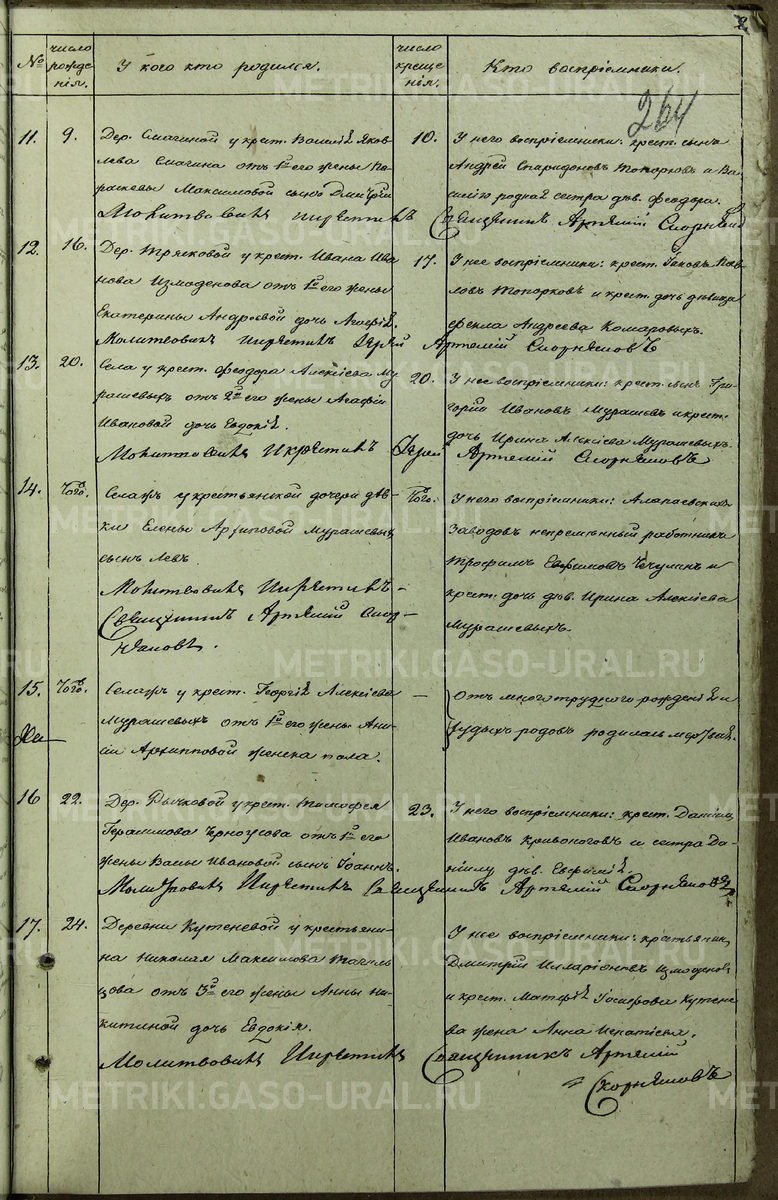 264
№ число рожде- нія. У кого кто родился. число креще- нія. Кто воспріемники.
11. 9. Дер. Смагиной у крест. Василія Яков-
лева Смагина отъ 1го его жены Па-
раскевы Максимовой сынъ Димитрій
Молитвовалъ и крестилъ
10. У него воспріемники: крест. сынъ
Андрей Спиридоновъ Топорковъ и Ва-
силію родная сестра дѣв. Феодора.
Священникъ Артемій Скорняковъ
12. 16. Дер. Трясковой у крест. Ивана Ива-
нова Измоденова отъ 1го его жены
Екатерины Андреевой дочь Агафія.
Молитвовалъ и крестилъ Іерей Артемій Скорняковъ
17. У нее воспріемники: крест. Іаковъ Пав-
ловъ Топорковъ и крест. дочь дѣвица
Фекла Андреева Комаровыхъ.
13. 20. Села у крест. Феодора Алексіева Му-
рашевыхъ отъ 2го его жены Агафіи
Ивановой дочь Евдокія.
Молитвовалъ и крестилъ Іерей Артемій Скорняковъ
20. У нее воспріемники: крест. сынъ Гри-
горій Ивановъ Мурашевъ и крест.
дочь Ирина Алексіева Мурашевыхъ.
14. Того. Селажъ у крестьянской дочери дѣв-
ки Елены Архиповой Мурашевыхъ
сынъ Левъ.
Молитвовалъ и крестилъ
Священникъ Артемій Скор-
няковъ.
Того. У него воспріемники: Алапаевскихъ
Заводовъ непремѣнный работникъ
Трофимъ Евфимовъ Чечулинъ и
крест. дочь дѣв. Ирина Алексіева
Мурашевыхъ.
15. Того. Селажъ у крест. Георгія Алексіева
Мурашевыхъ отъ 1го его жены Ани-
сіи Архипповой женска пола.
— Отъ многотруднаго рожденія и
худыхъ родовъ родилась мертвой.
16 22. Дер. Рычковой у крест. Тимофея
Герасимова Черноусова отъ 1го его
жены Вассы Ивановой сынъ Іоаннъ.
Молитвовалъ и крестилъ Священникъ Артемій Скорняковъ
23. У него воспріемники: крест. Даніилъ
Ивановъ Кривоноговъ и сестра Да-
ніилу дѣв. Евфимія.
17. 24. Деревни Кутеневой у крестьяни-
на Николая Максимова Тагиль-
цова отъ 3го его жены Анны Ни-
китиной дочь Евдокія.
Молитвовалъ и крестилъ Священникъ Артемій
Скорняковъ
У нее воспріемники: крестьянинъ
Дмитрій Иларіоновъ Измоденовъ
и крест. Матфія Іосифова Кутене-
ва жена Анна Игнатіева.
METRIKI.GASO-URAL.RU